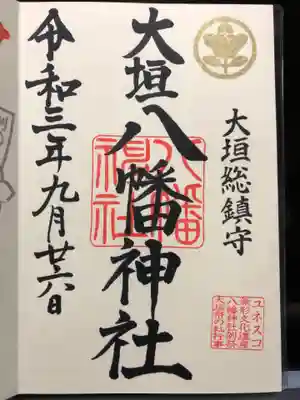 大垣総鎮守
大垣八幡神社
八幡
神社
令和三年九月廿六日
ユネスコ
無形文化遺産
八幡神社例祭
大垣祭の𨋳行事